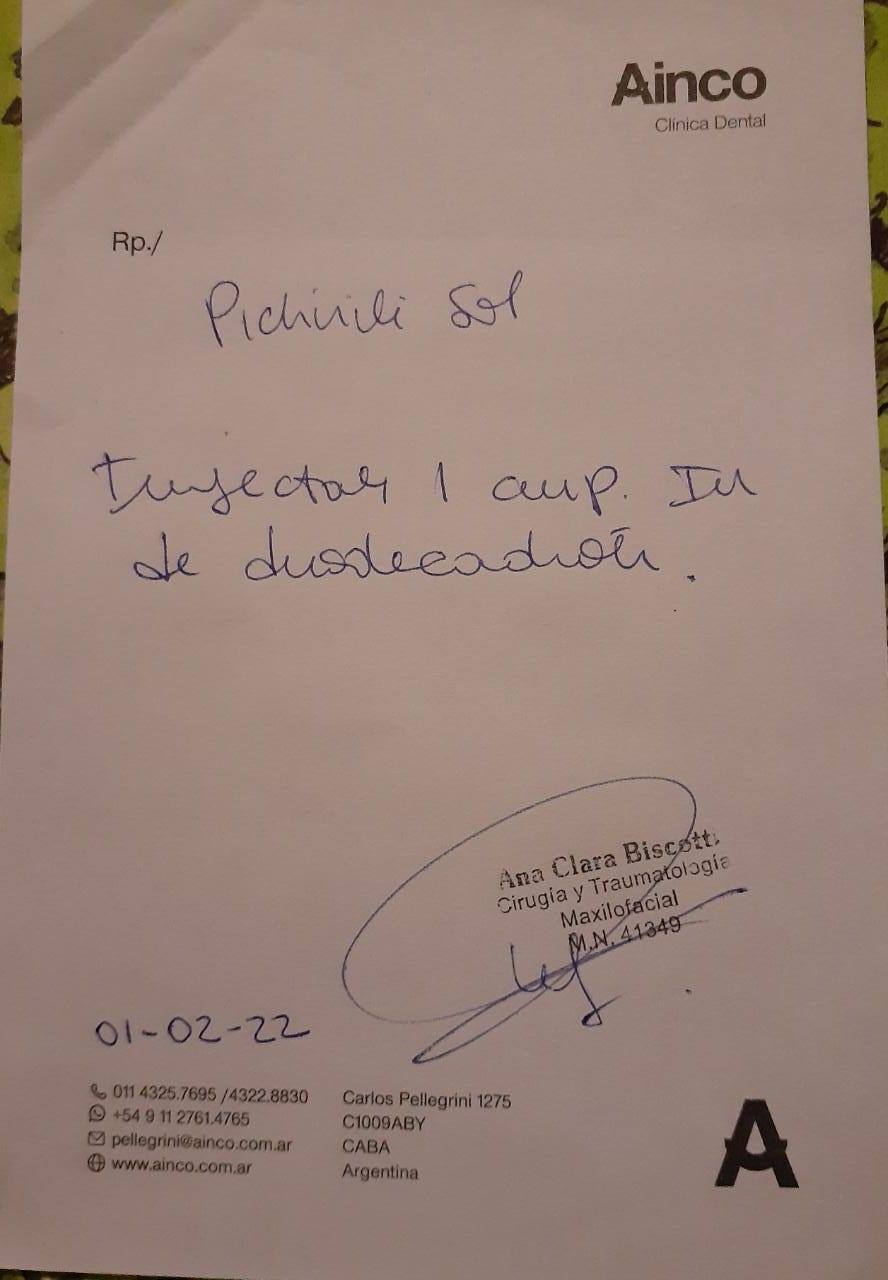 Ainco
Clínica Dental
Rp./
Sol
Inyectar 1 amp. IM
de duodecadrón.
Ana Clara Biscotti
Cirugía y Traumatología
Maxilofacial
M.N. 41349
01-02-22
011 4325.7695 /4322.8830
+54 9 11 2761.4765
pellegrini@ainco.com.ar
www.ainco.com.ar
Carlos Pellegrini 1275
C1009ABY
CABA
Argentina
A